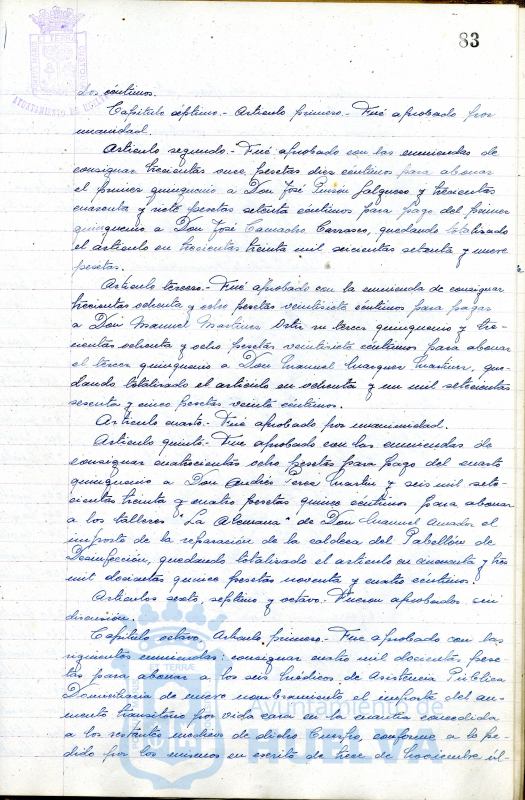 83
AYUNTAMIENTO DE HUELVA
dos céntimos.
Capítulo séptimo.- Artículo primero.- Fué aprobado por
unanimidad.
Artículo segundo.- Fué aprobado con las enmiendas de
consignar trescientas once pesetas diez céntimos para abonar
el primer quinquenio a Don José Pinzón Salguero y trescientas
cuarenta y siete pesetas setenta céntimos para pago del primer
quinquenio a Don José Camacho Carrasco, quedando totalizado
el artículo en trescientas treinta mil seiscientas setenta y nueve
pesetas.
Artículo tercero.- Fué aprobado con la enmienda de consignar
trescientas ochenta y ocho pesetas veintisiete céntimos para pagar
a Don Manuel Martínez su tercer quinquenio y tres-
cientas ochenta y ocho pesetas veintisiete céntimos para abonar
el tercer quinquenio a Don Manuel Márquez Martínez, que-
dando totalizado el artículo en ochenta y un mil setecientas
sesenta y cinco pesetas veinte céntimos.
Artículo cuarto.- Fué aprobado por unanimidad.
Artículo quinto.- Fue aprobado con las enmiendas de
consignar cuatrocientas ocho pesetas para pago del cuarto
quinquenio a Don Andrés Perea Martín y seis mil sete-
cientas treinta y cuatro pesetas quince céntimos para abonar
a los talleres "La Alemana" de Don Manuel Amador el
importe de la reparación de la caldera del Pabellón de
Desinfección, quedando totalizado el artículo en cincuenta y tres
mil doscientas quince pesetas noventa y cuatro céntimos.
Artículos sexto, septimo y octavo.- Fueron aprobados sin
discusión.
Capítulo octavo. Artículo primero.- Fue aprobado con las
siguientes enmiendas: consignar cuatro mil doscientas pese-
tas para abonar a los seis médicos de Asistencia Pública
Domiciliaria de nuevo nombramiento el importe del au-
mento transitorio por vida cara en la cuantía concedida
a los restantes médicos de dicho Cuerpo, conforme a lo pe-
dido por los mismos en escrito de trece de Noviembre úl-
Ayuntamiento de
HUELVA